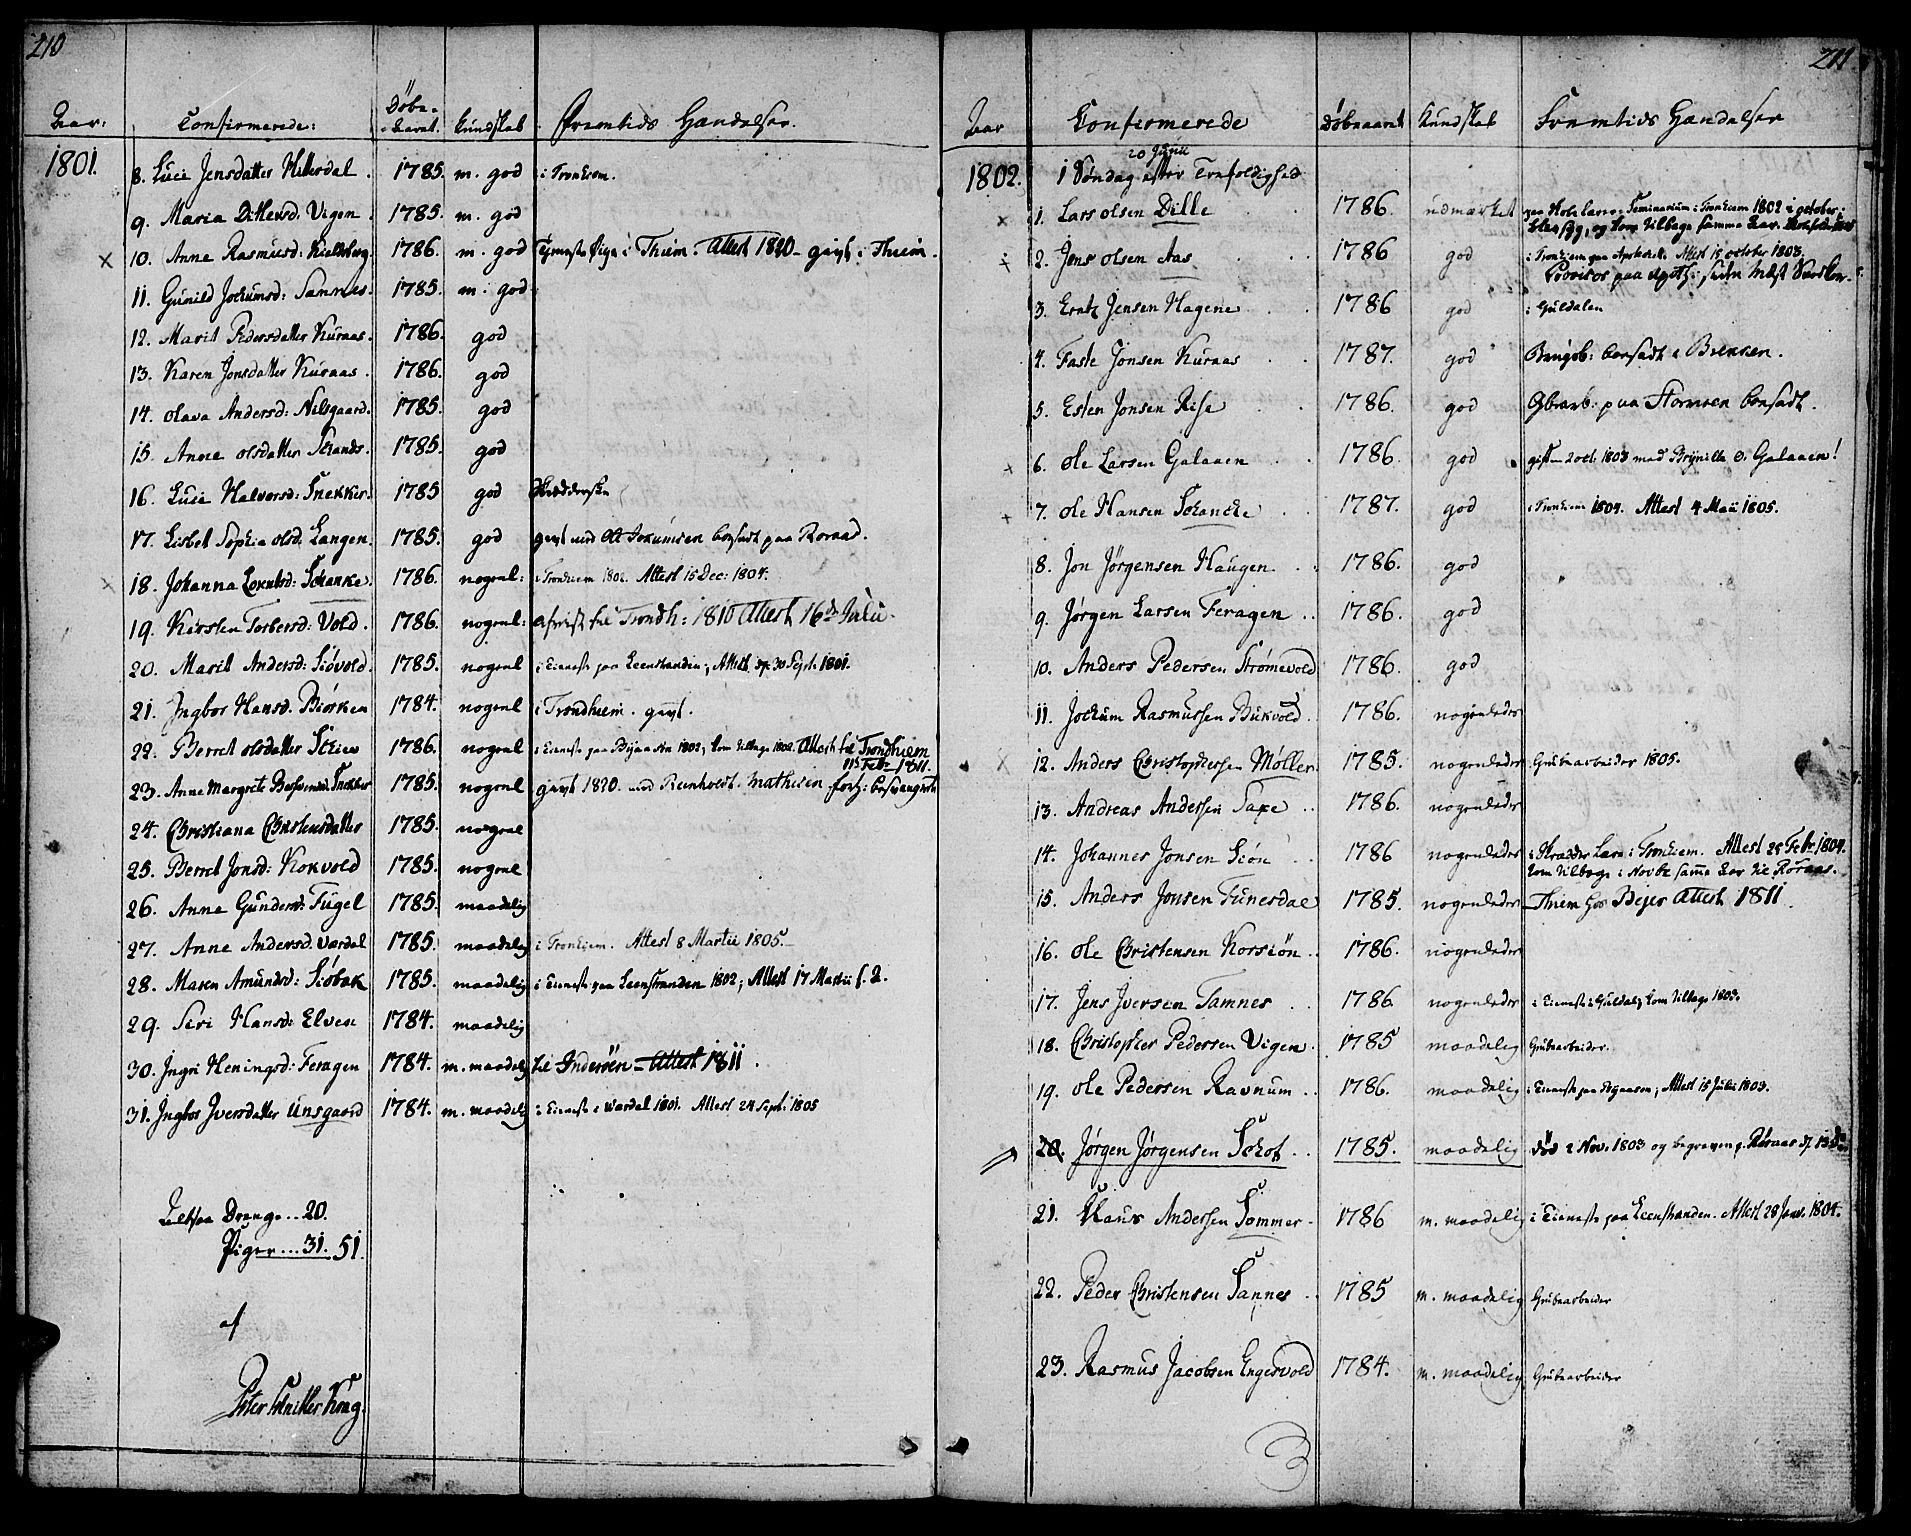 210
Aar: Confirmerede: Döbe-Aaret. Kundskab Fremtids Hændelser.
1801. 8. Luci Jensdatter Hitterdal. 1785. m. god i Tronhiem.
9. Maria Ditlevsd. Vigen. 1785. m. god
10. Anne Rasmusd: 1786. m. god Tieneste Pige i Thiem. Attest 1820 - givt i Thiem.
11. Gunild Jochumsd: Tamnes. 1785. m. god
12. Marit Pedersdatter Kuraas. 1786. god
13. Karen Jonsdatter Kuraas. 1786. god
14. Olava Andersd: Nilsgaard. 1785. god
15. Anne Olsdatter Strands. 1785. god
16. Luci Halvorsd: Snekker. 1785 god
17. Lisbet Sophia Olsd. Langen. 1785. god givt med Ole Jokumsen bosadt paa Roraas.
18. Johanna Lorntsd: Schanke. 1786. nogenl: i Tronhiem 1802. Attest 15 Dec: 1804.
19. Kirsten Torbersd: Vold. 1786. nogenl: afreist til Trondh: 1810 Attest 16de Julii.
20. Marit Andersd: Siövold. 1785. nogenl i Tieneste paa Leenstranden; Attest 30 Sept. 1801.
21. Ingbor Hansd. Biörken 1784. nogenl i Trondhiem. givt.
22. Berret Olsdatter 1786. nogenl i Tieneste paa 1802; kom tilbage 1802. Attest til Trondhiem 11te Febr 1811.
23. Anne Margrete Snekker 1785. nogenl givt 1820. med Reinholdt. Mathisen
24. Christiana Christensdatter 1785. nogenl
25. Berret Jonsd: Kokvold 1785. nogenl
26. Anne Gundersd: Fugel 1785. maadelig
27. Anne Andersd. Værdal 1785. maadelig i Tronhiem. Attest 8 Martii 1805.
28. Maren Amundsd: Siöbak 1785. maadelig i Tieneste paa Leenstranden 1802; Attest 17 Martii
29. Siri Hansd: Elven 1784. maadelig
30. Ingri Heningsd: Feragen 1784. m. maadelig til Inderöen - Attest 1811.
31. Ingbor Iversdatter Unsgaard 1784. m. maadelig i Tieneste i Værdal 1801. Attest 24 Sept. 1805
Altsaa Drenge...20.
Piger...31. 51.
af
Peter Schnitler Krag.
211.
Aar Confirmerede Döbeaaret Kundskab Fremtids Hændelser
20 Junii
1802. 1 Söndag efter Trefoldighed
1. Lars Olsen Dille 1786. udmærket paa Seminarium i Tronhiem 1802 i october; og kom tilbage samme Aar.
2. Jens Olsen Aas 1786 god i Tronhiem paa Apotheket. Attest 15 october 1803.
Provisor paa
3. Jensen Hagene 1786 god i Guldalen
4. Faste Jonsen Kuraas 1787. god bosadt i Brekken.
5. Esten Jonsen Rise 1786. god paa Stormoen bosadt.
6. Ole Larsen Galaaen 1786. god gift 2 oct. 1803 med Brynille O. Galaaen!
7. Ole Hansen Schancke 1787. god i Tronhiem 1804. Attest 4 Maii 1805.
8. Jon Jörgensen Haugen. 1786. god
9. Jörgen Larsen Feragen 1786. god
10. Anders Pedersen Strömevold 1786. god
11. Jochum Rasmussen Bukvold 1786. nogenledes
12. Anders Christophersen Möller 1785. nogenledes Grubearbeider 1805.
13. Andreas Andersen Saxe 1786. nogenledes
14. Johannes Jonsen Siön 1786 nogenledes i Skrædder Lære i Tronhiem. Attest 25 Febr. 1804.
kom tilbage i Novbr samme Aar til Röraas.
15. Anders Jonsen Funesdal 1785. nogenledes Thiem hos Bejer Attest 1811.
16. Ole Christensen Korssiön 1786. nogenledes
17. Jens Iversen Tamnes 1786 nogenledes i Tieneste i Guldal; kom tilbage 1803.
18. Christopher Pedersen Vigen 1785 maadelig Grubearbeider.
19. Ole Pedersen Ravnum 1786. maadelig i Tieneste paa Attest 15 Julii 1803.
20. Jörgen Jörgensen Schot 1785. maadelig död 2 Nov. 1803 og begraven p. Röraas 13 D:
21. Klaus Andersen Sommer 1786 m. maadelig i Tieneste paa Leenstranden. Attest 28 Jan. 1804.
22. Peder Christensen Sannes 1785 m. maadelig Grubearbeider
23. Rasmus Jacobsen Engesvold 1784. m. maadelig Grubearbeider